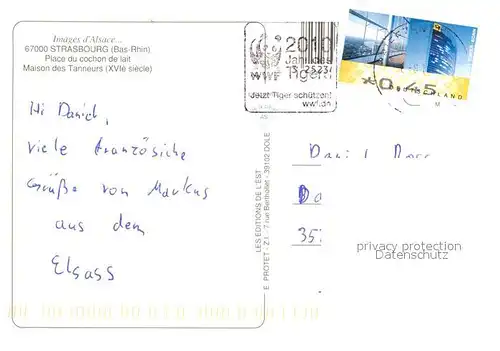 Images d'Alsace...
67000 STRASBOURG (Bas-Rhin)
Place du cochon de lait
Maison des Tanneurs (XVIe siècle)
Hi Daniel,
viele französische
Grüße von Markus
aus dem
Elsass
LES EDITIONS DE L'EST
E. PROTET - Z.I. - 7 rue Berthollet - 39102 DOLE
WWF
2010
Jahr des
Tigers
Jetzt Tiger schützen!
wwf.de
0,45
DEUTSCHLAND
Daniel
privacy protection
Datenschutz